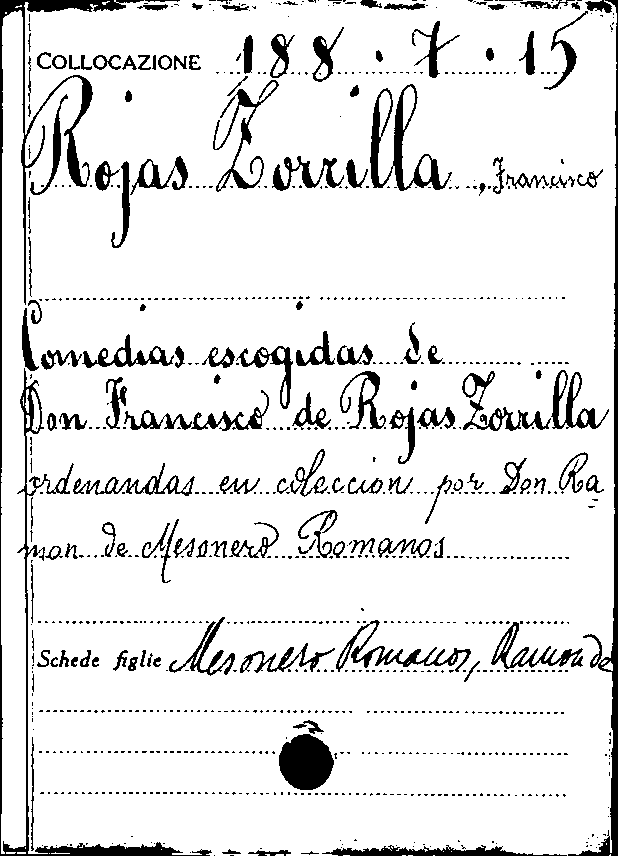 COLLOCAZIONE 188.7.15
Rojas Zorrilla, Francisco
Comedias escogidas de
Don Francisco de Rojas Zorrilla
ordenandas en coleccion por Don Ra-
mon de Mesonero Romanos
Schede figlie Mesonero Romanos, Ramon de